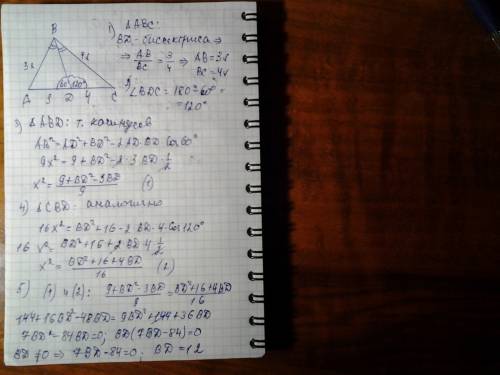 B
3x
4x
60° 120°
A 3 D 4 C
1) ΔABC:
BD - биссектриса ⇒
⇒ AB/BC = 3/4 ⇒ AB = 3x
BC = 4x
2) ∠BDC = 180° - 60° =
= 120°
3) ΔABD: т. косинусов
AB² = AD² + BD² - 2AD·BD Cos 60°
9x² = 9 + BD² - 2·3 BD·1/2
x² = (9 + BD² - 3BD)/9 (1)
4) ΔCBD: аналогично
16x² = BD² + 16 - 2 BD·4·Cos 120°
16 x² = BD² + 16 + 2 BD·4·1/2
x² = (BD² + 16 + 4BD)/16 (2)
5) (1) и (2): (9 + BD² - 3BD)/9 = (BD² + 16 + 4BD)/16
144 + 16BD² - 48BD = 9BD² + 144 + 36BD
7BD² - 84BD = 0; BD(7BD - 84) = 0
BD ≠ 0 ⇒ 7BD - 84 = 0; BD = 12